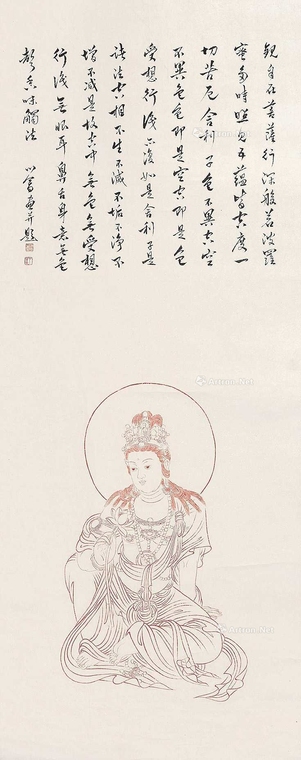 觀自在菩薩行深般若波羅
蜜多時照見五蘊皆空度一
切苦厄舍利子色不異空空
不異色色即是空空即是色
受想行識亦復如是舍利子是
諸法空相不生不滅不垢不淨不
增不減是故空中無色無受想
行識無眼耳鼻舌身意無色
聲香味觸法
心畬畫并題